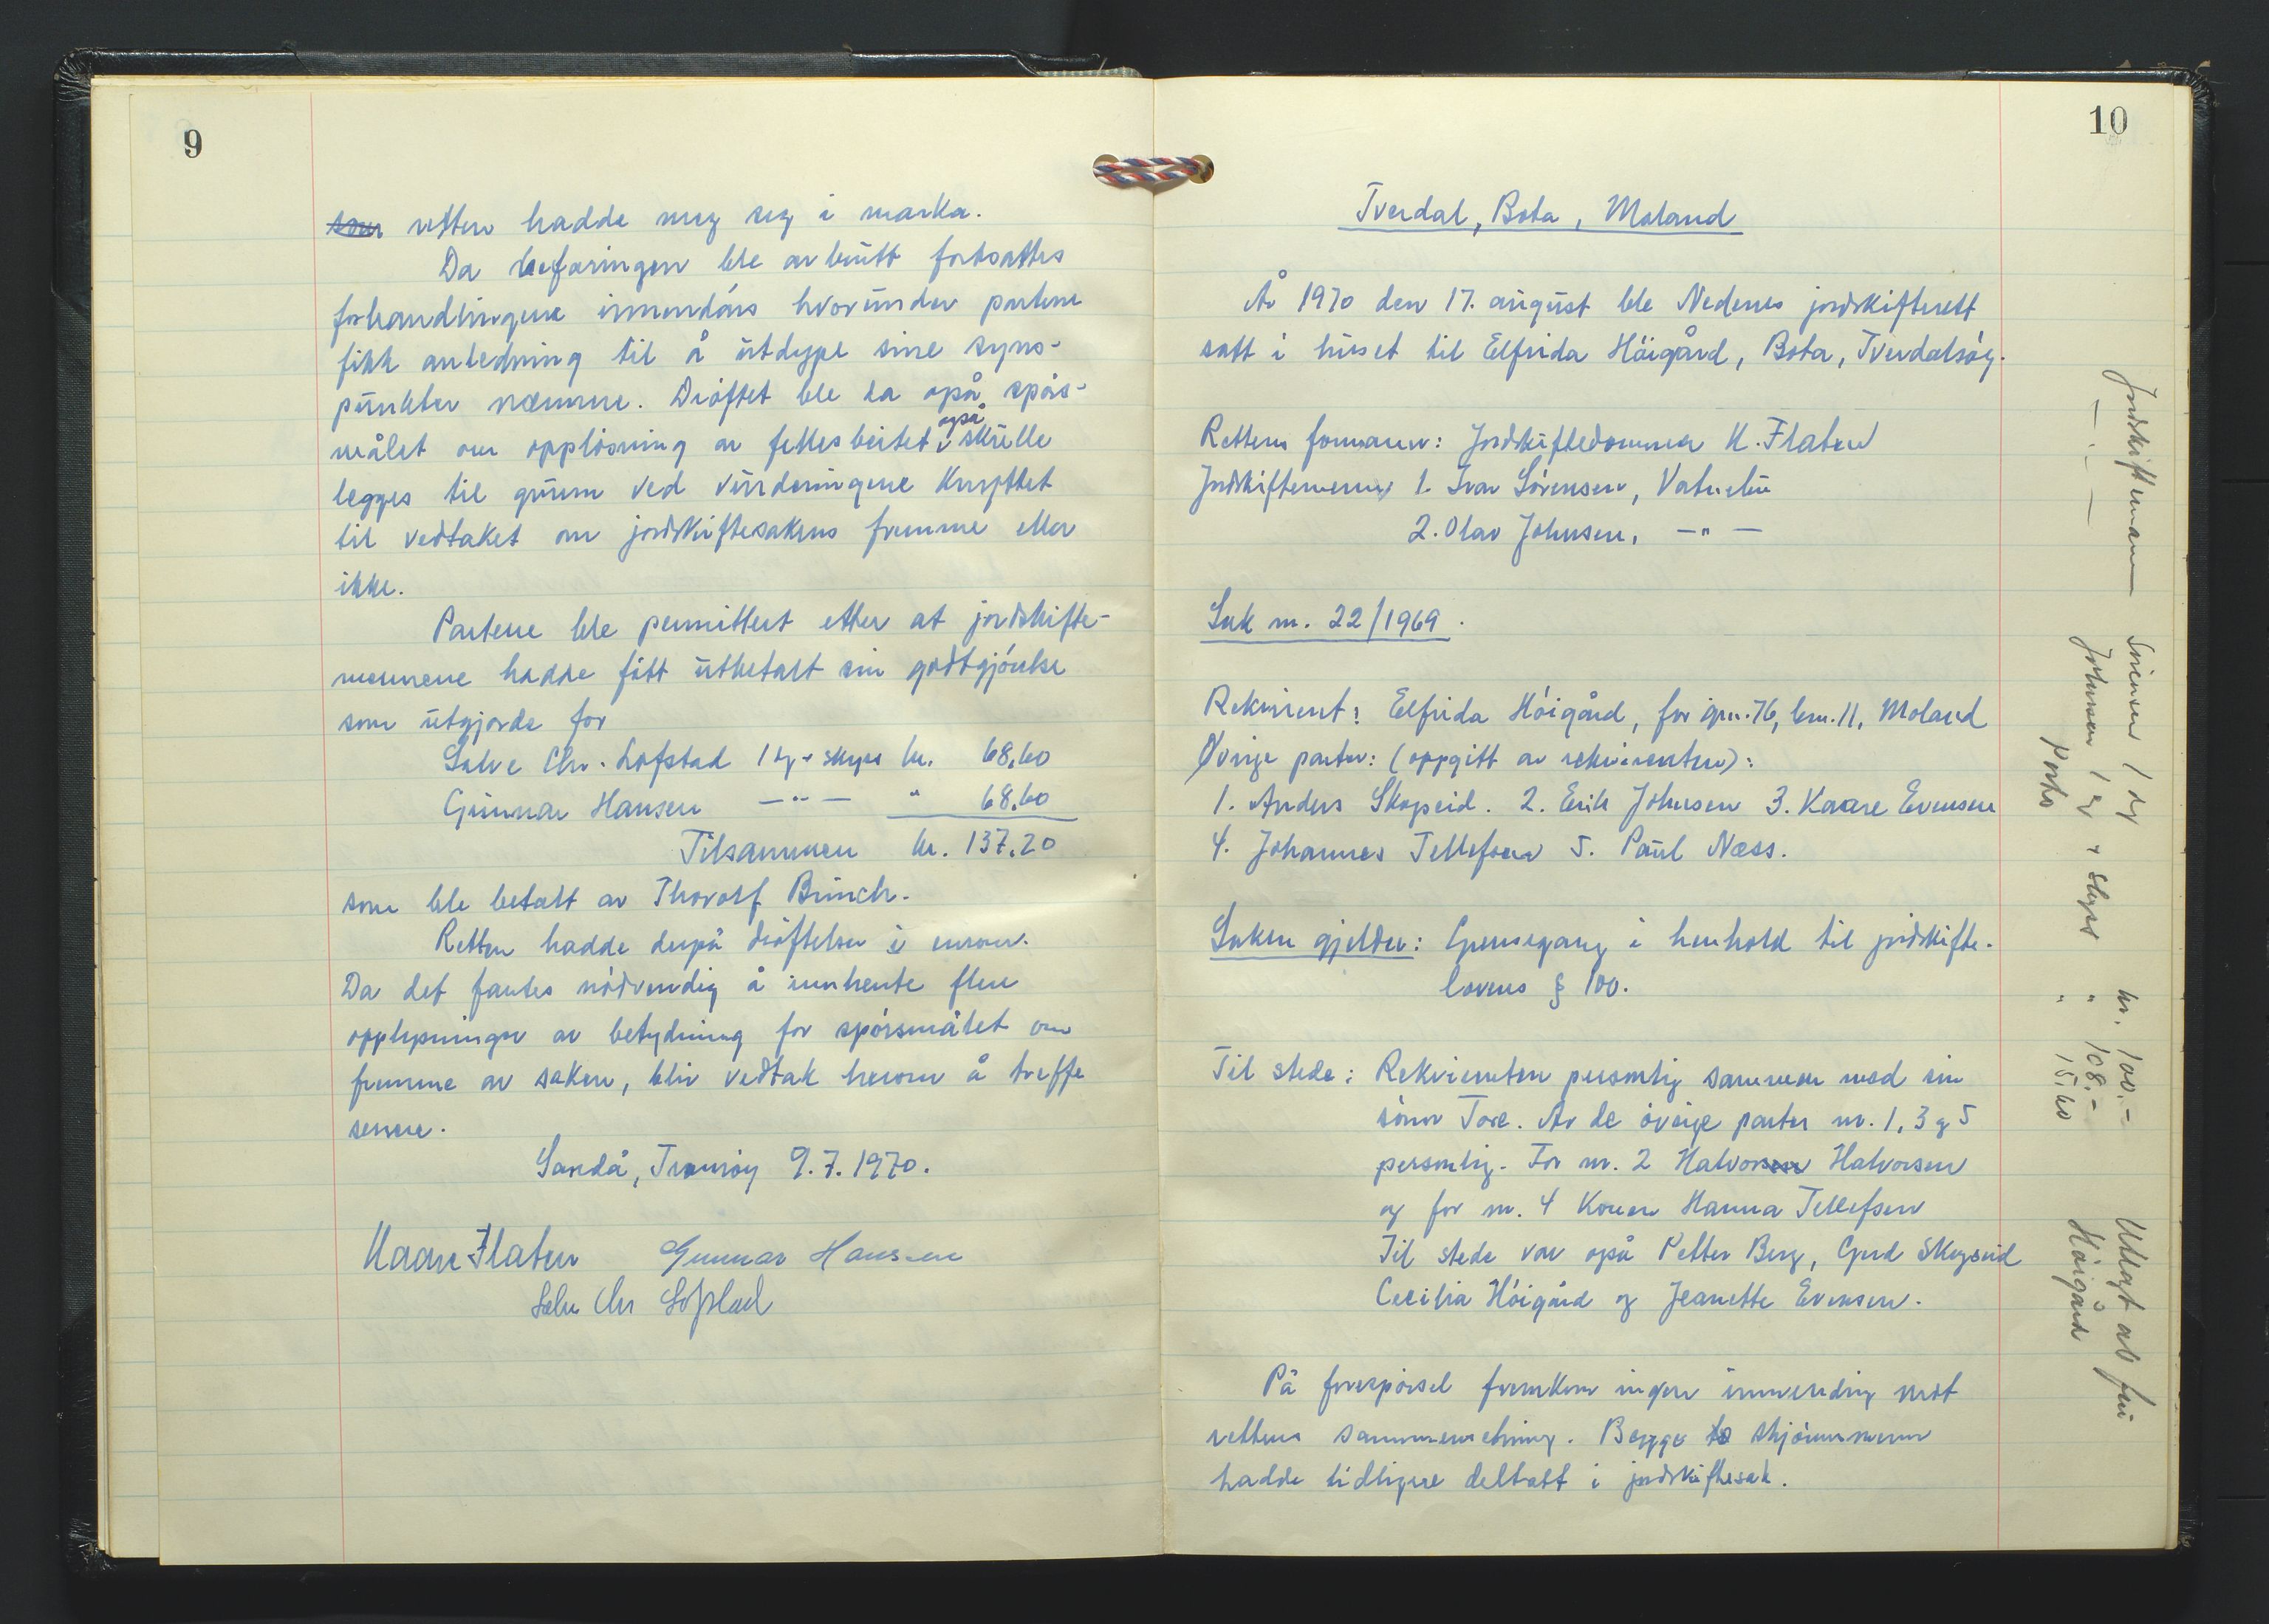 9
som retten hadde med seg i marka.
Da befaringen ble avbrutt fortsattes
forhandlingene innendörs hvorunder partene
fikk anledning til å utdype sine syns-
punkter nærmere. Dröftet ble da også spörs-
målet om opplösning av fellesbeitet også skulle
legges til grunn ved vurderingene knyttet
til vedtaket om jordskiftesakens fremme eller
ikke.
Partene ble permittert etter at jordskifte-
mennene hadde fått utbetalt sin godtgjörelse
som utgjorde for
Salve Chr. Lofstad 1 dg + skyss kr. 68,60
Gunnar Hansen —"— " 68,60
Tilsammen kr. 137,20
som ble betalt av Thorolf Bunch.
Retten hadde derpå dröftelser i enrom.
Da det fantes nödvendig å innhente flere
opplysninger av betydning for spörsmålet om
fremme av saken, blir vedtak herom å treffe
senere.
Sandå, Tromöy 9.7.1970.
Haan Flaten Gunnar Hansen
Salve Chr Lofstad
10
Tverdal, Bota, Moland
År 1970 den 17. august ble Nedenes jordskifterett
satt i huset til Elfrida Höigård, Bota, Tverdalsöy.
Rettens formann: Jordskiftedommer H. Flaten
Jordskiftemenn: 1. Ivar Sörensen, Vatnebu
2. Olav Johnsen, —"—
Sak nr. 22/1969.
Rekvirent: Elfrida Höigård, for gnr. 76, bnr. 11, Moland
Øvrige parter: (oppgitt av rekvirenten):
1. Anders Skopseid. 2. Erik Johnsen 3. Kaare Evensen
4. Johannes Tellefsen 5. Paul Næss.
Saken gjelder: Grensegang i henhold til jordskifte-
lovens § 100.
Til stede: Rekvirenten personlig sammen med sin
sönn Tore. Av de övrige parter nr. 1, 3 og 5
personlig. For nr. 2 Halvorsen Halvorsen
og for nr. 4 konen Hanna Tellefsen
Til stede var også Petter Berg, Gerd Skopseid
Cecilia Höigård og Jeanette Evensen.
På forespörsel fremkom ingen innvending mot
rettens sammensetning. Begge to skjönnsmenn
hadde tidligere deltatt i jordskiftesak.
Jordskiftemann Sörensen 1 dg kr. 100.- Utlagt av fru
—"— Johnsen 1 dg + skyss " 108.- Höigård
Porto " 15,60